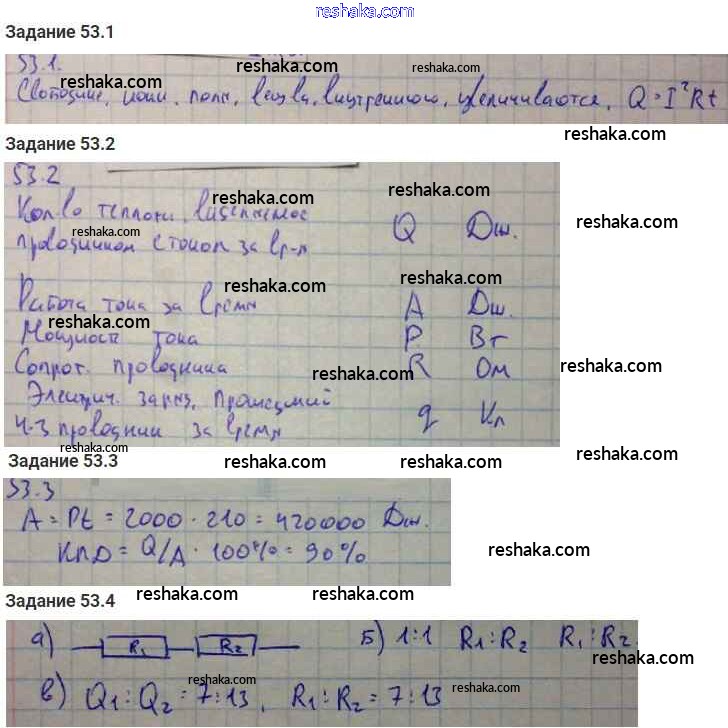 reshak.ru
Задание 53.1
53.1.
reshaka.com
reshaka.com
Свободные, ионы, внутренного, увеличиваются, Q = I²Rt
reshaka.com
Задание 53.2
53.2
reshaka.com
reshaka.com
Кол-во теплоты, выделяемое
проводником с током за вр-я
Q Дж.
reshaka.com
reshaka.com
reshaka.com
reshaka.com
Работа тока за время A Дж.
reshaka.com
reshaka.com
Мощность тока P Вт
Сопрот. проводника R Ом
reshaka.com
reshaka.com
Электрич. заряд, прошедший
ч-з проводник за время
q Кл
reshaka.com
reshaka.com
Задание 53.3
reshaka.com
reshaka.com
reshaka.com
53.3
A = Pt = 2000 · 210 = 420000 Дж.
КПД = Q/A · 100% = 90%
reshaka.com
reshaka.com
reshaka.com
Задание 53.4
а) R₁ R₂ Б) 1:1 R₁:R₂ R₁:R₂
reshaka.com
reshaka.com
reshaka.com
в) Q₁:Q₂ = 7:13, R₁:R₂ = 7:13